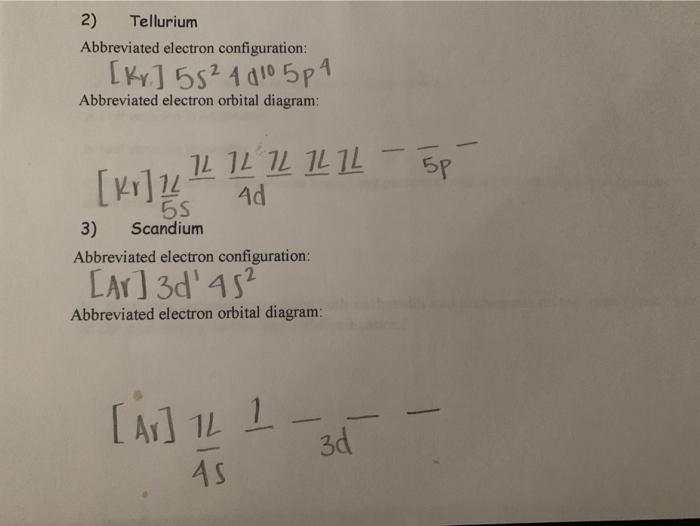 2) Tellurium
Abbreviated electron configuration:
[Kr] 5s² 4d¹⁰ 5p⁴
Abbreviated electron orbital diagram:
[Kr] 1L 1L 1L 1L 1L 1L _ _ _
5s 4d 5p
3) Scandium
Abbreviated electron configuration:
[Ar] 3d¹ 4s²
Abbreviated electron orbital diagram:
[Ar] 1L 1 _ _ _ 
4s 3d